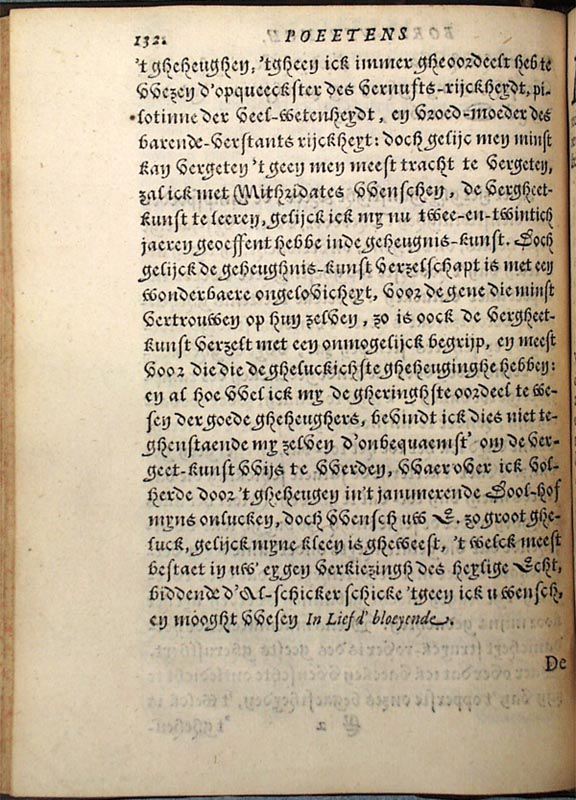 132. POEETENS
't gheheughen, 'tgheen ick immer gheoordeelt heb te
VVezen d'opqueeckster des Vernufts-rijckheydt, pi-
lotinne der Veel-wetenheydt, en Vroed-moeder des
barende-Verstants rijckheyt: doch gelijc men minst
kan Vergeten 't geen men meest tracht te Vergeten,
zal ick met Mithridates VVenschen, de Vergheet-
kunst te leeren, gelijck ick my nu twee-en-twintich
jaeren geoeffent hebbe inde geheugnis-kunst. Doch
gelijck de geheughnis-kunst Verzelschapt is met een
wonderbaere ongelovicheyt, Voor de gene die minst
Vertrouwen op hun zelven, zo is oock de Vergheet-
kunst Verzelt met een onmogelijck begrijp, en meest
Voor die die de gheluckichste gheheuginghe hebben:
en al hoe VVel ick my de gheringhste oordeel te we-
sen der goede gheheughers, beVindt ick dies niet te-
ghenstaende my zelven d'onbequaemst' om de Ver-
geet-kunst VVijs te VVerden, VVaer over ick Vol-
herde door 't gheheugen in't jammerende Dool-hof
myns onlucken, doch VVensch uw E. zo groot ghe-
luck, gelijck myne kleen is gheweest, 't welck meest
bestaet in uw' eygen Verkiezingh des heylige Echt,
biddende d'Al-schicker schicke 'tgeen ick u wensch,
en mooght VVesen In Liefd' bloeyende.
De